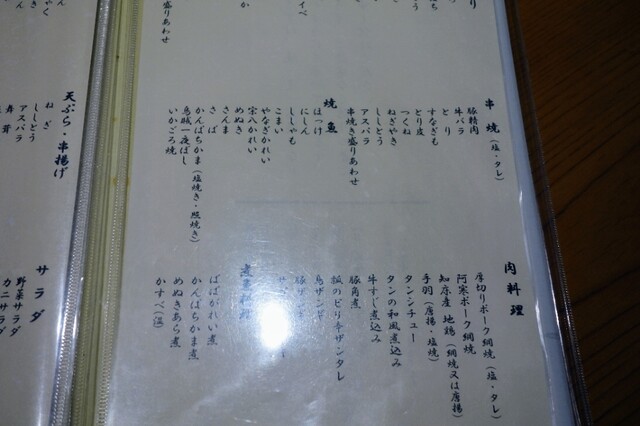 盛りあわせ
串焼(塩・タレ)
豚精肉
牛バラ
とり
すなぎも
とり皮
つくね
ねぎやき
ししとう
アスパラ
串焼き盛りあわせ
焼魚
ほっけ
にしん
ししゃも
こまい
やなぎかれい
宗八かれい
めぬき
さんま
さば
かんぱちかま(塩焼き・照焼き)
烏賊一夜ぼし
いかごろ焼
肉料理
厚切りポーク網焼(塩・タレ)
阿寒ポーク網焼
知床産地鶏(網焼又は唐揚)
手羽(唐揚・塩焼)
タンシチュー
タンの和風煮込み
牛すじ煮込み
豚角煮
豚のピリ辛ザンタレ
鳥ザンギ
煮魚料理
ばばがれい煮
かんぱちかま煮
めぬきあら煮
かすべ(温)
天ぷら・串揚げ
ねぎ
ししとう
アスパラ
舞茸
サラダ
野菜サラダ
カニサラダ